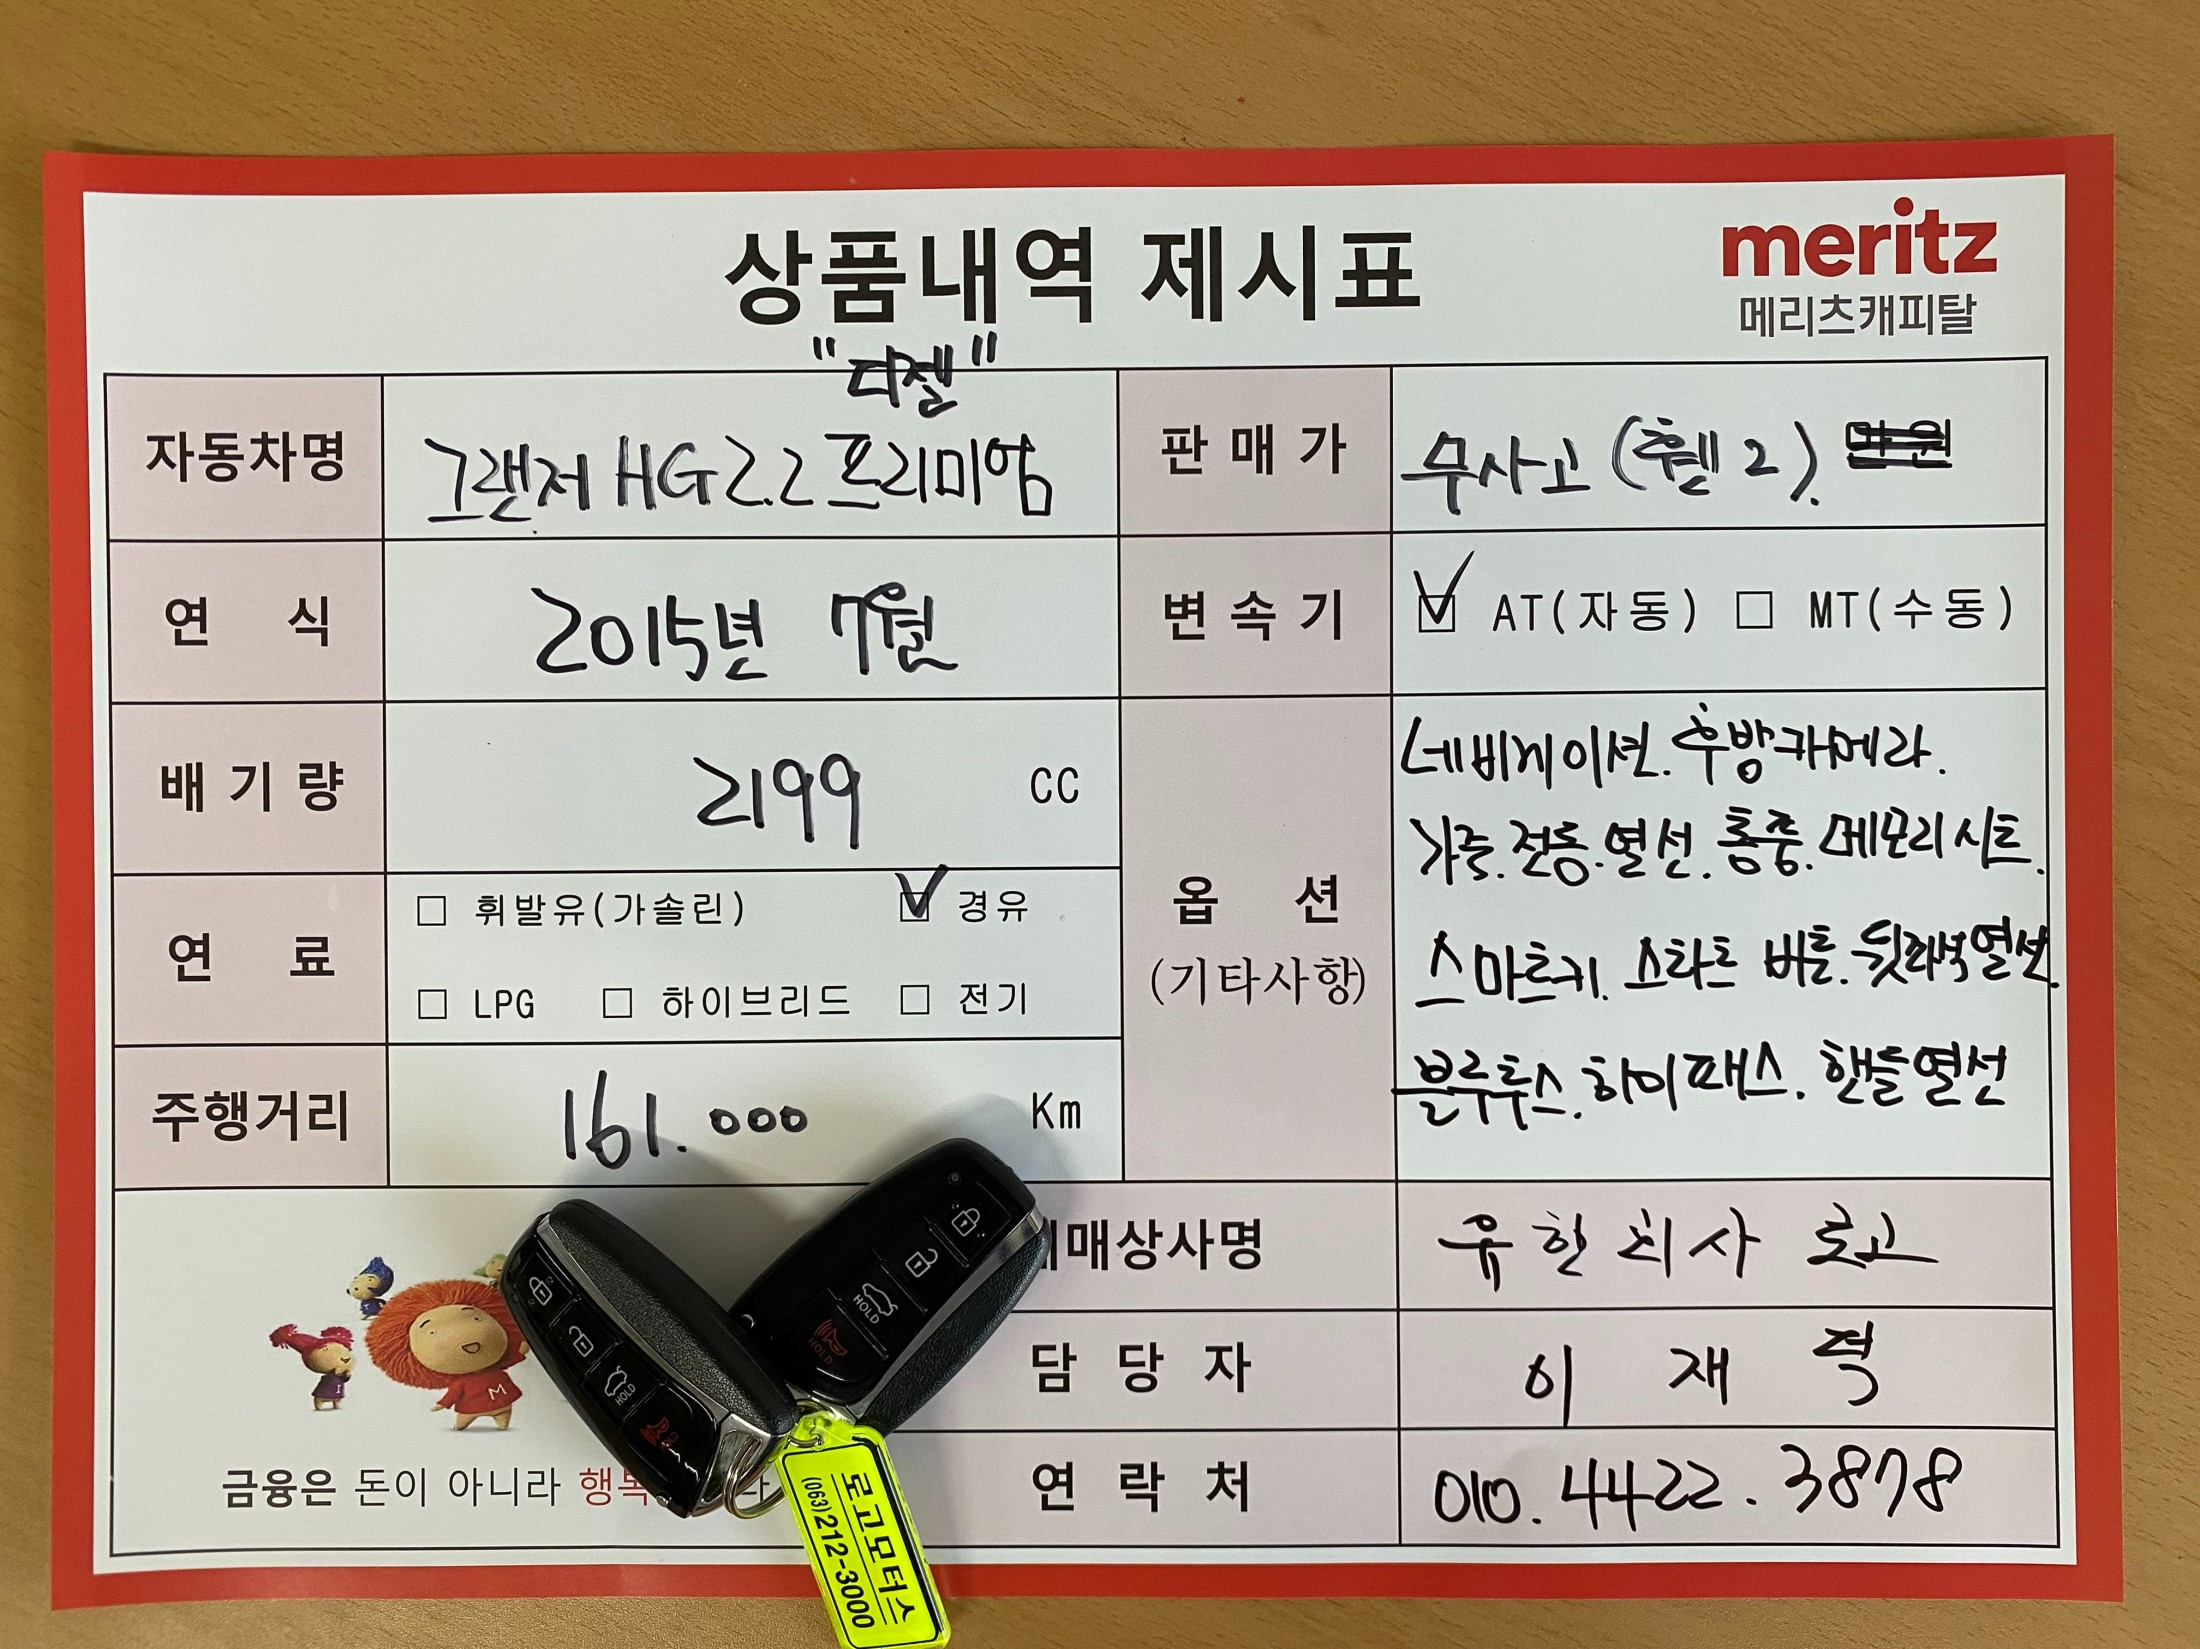 상품내역 제시표
meritz
메리츠캐피탈
"디젤"
자동차명 그랜저 HG 2.2 프리미엄
판매가 무사고 (휀2). 만원
연식 2015년 7월
변속기 ☑ AT(자동) □ MT(수동)
배기량 2199 CC
옵션
(기타사항)
네비게이션. 후방카메라.
가죽. 전동. 열선. 통풍. 메모리시트.
스마트키. 스타트 버튼. 뒷좌석열선.
블루투스. 하이패스. 핸들열선
연료 □ 휘발유(가솔린) ☑ 경유
□ LPG □ 하이브리드 □ 전기
주행거리 161.000 Km
매매상사명 유한회사 로고
담당자 이재
연락처 010.4422.3878
금융은 돈이 아니라
M
I
I
HOLD
HOLD
HOLD
HOLD
로고모터스
(063)212-3000